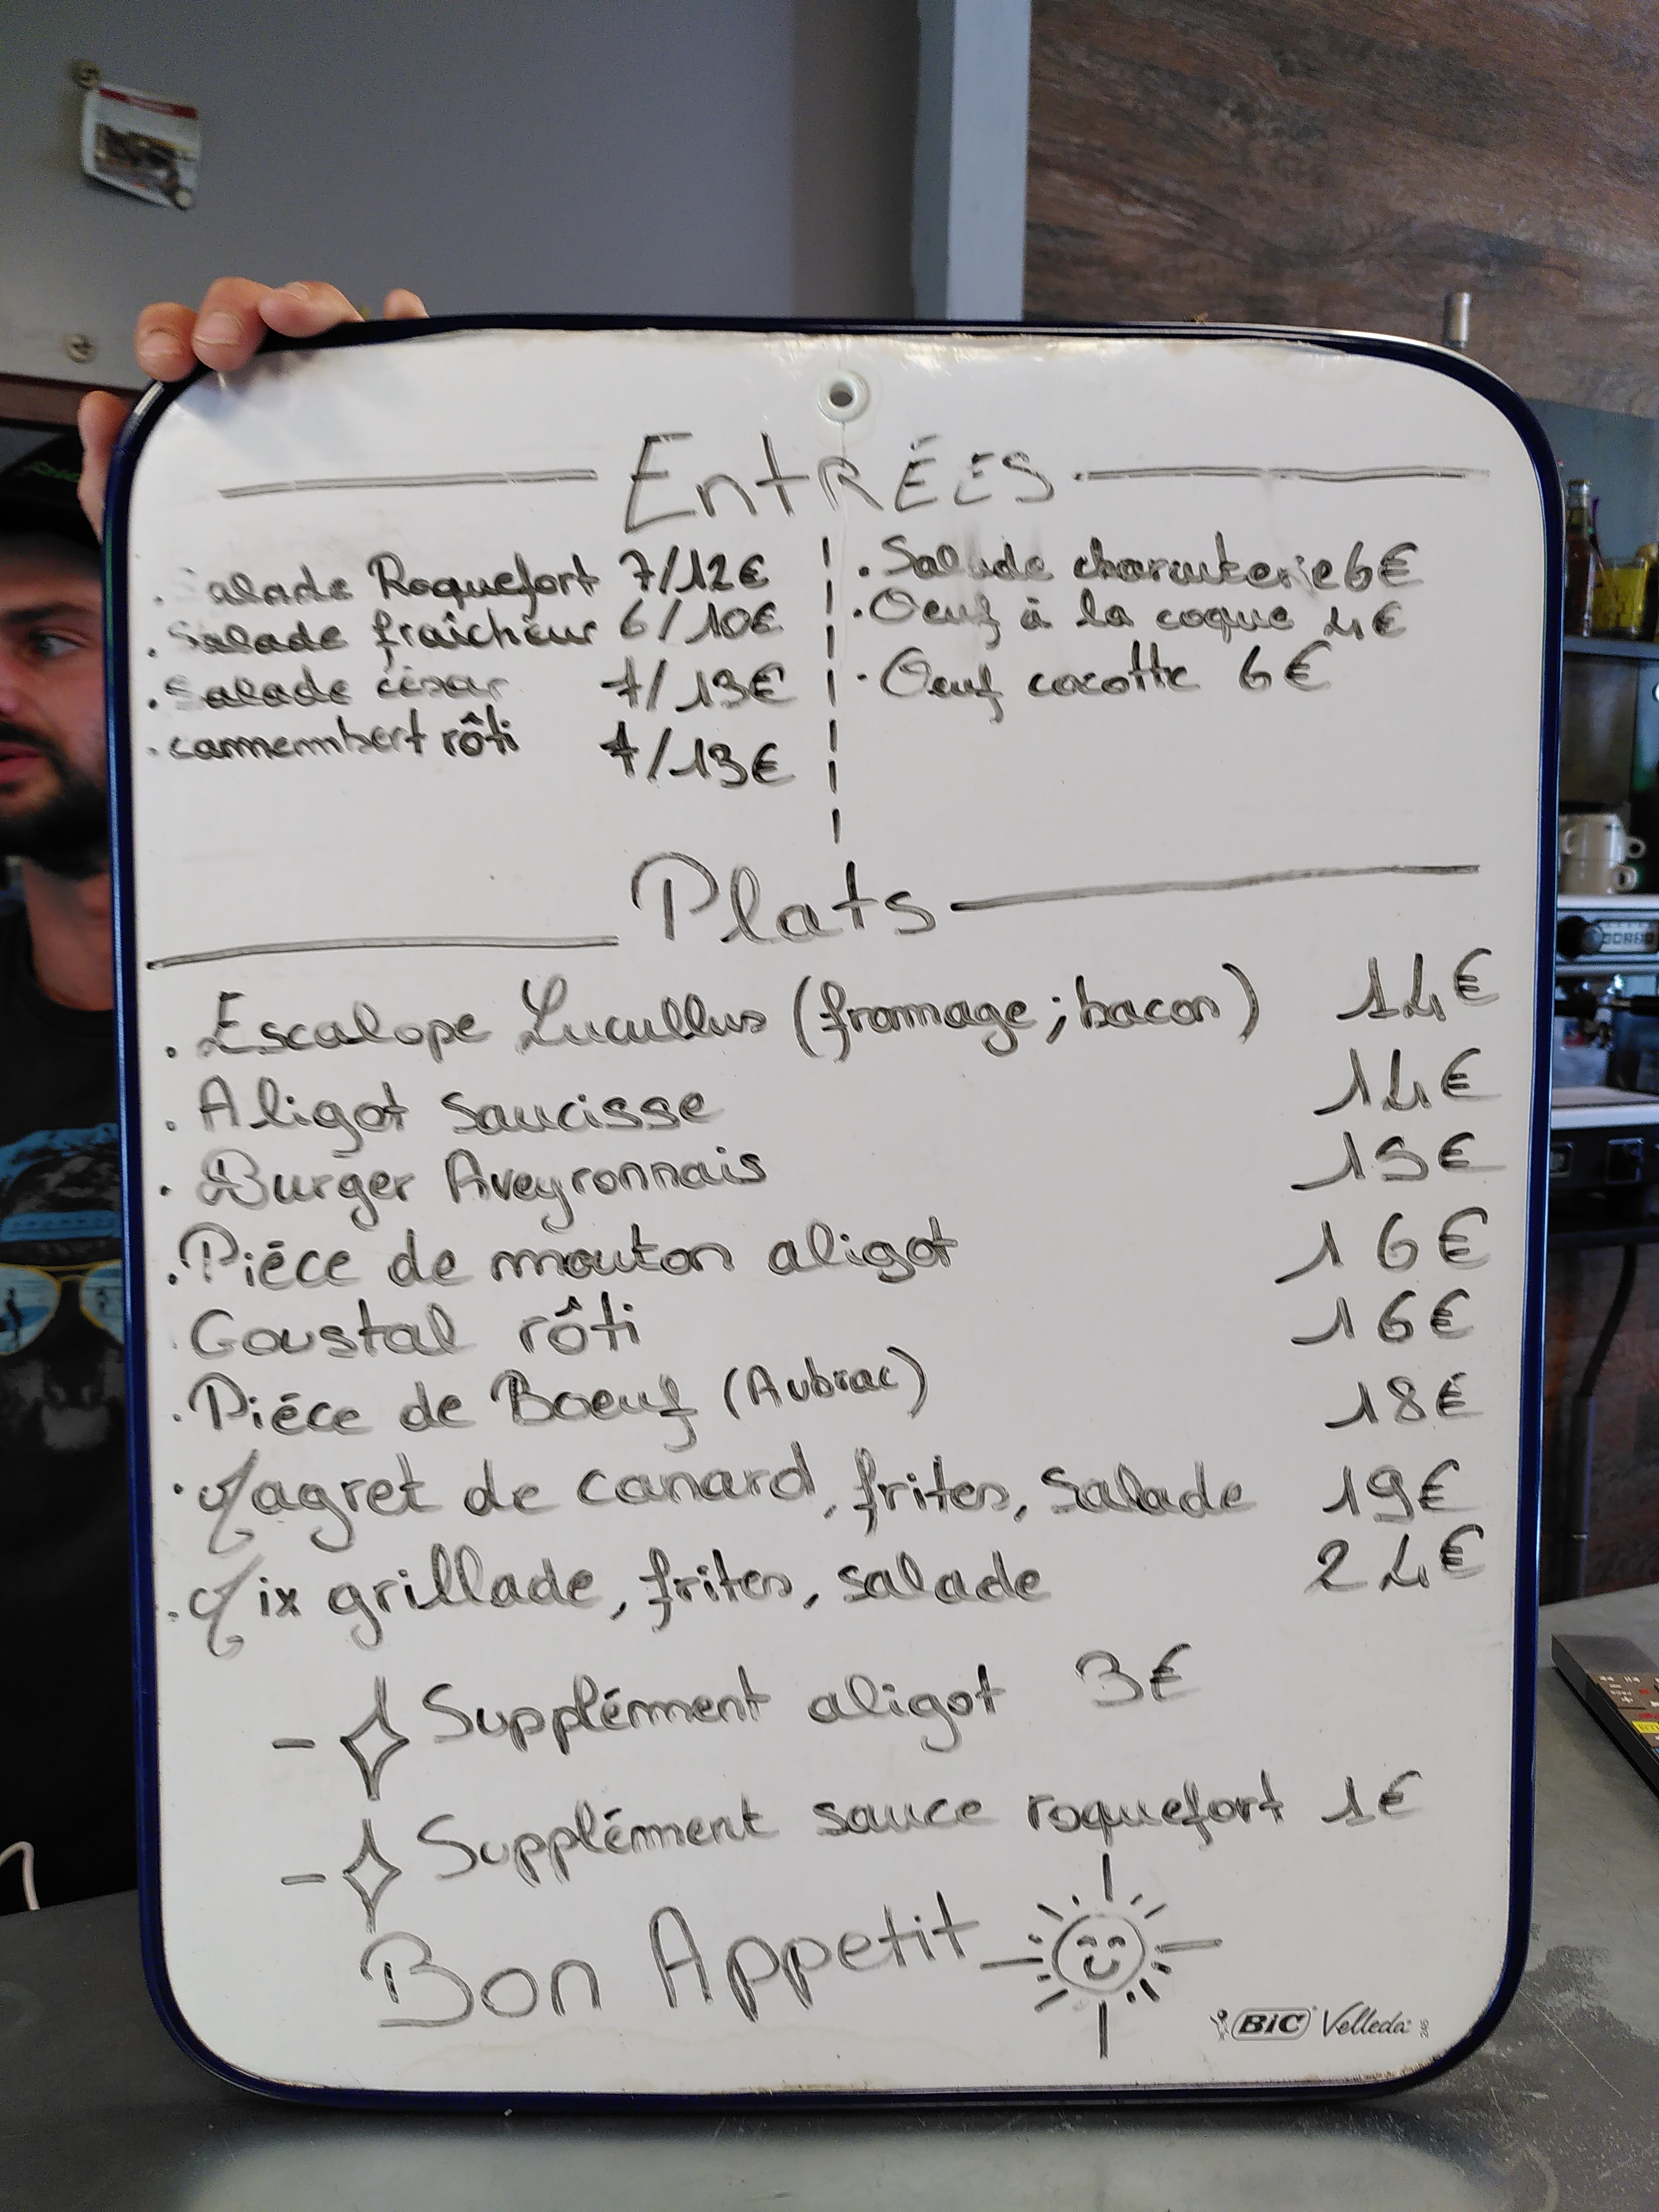 EntRÉES
. Salade Roquefort 7/12€
. Salade fraîcheur 6/10€
. Salade césar 7/13€
. camembert rôti 7/13€
. Salade charcuterie 6€
. Oeuf à la coque 4€
. Oeuf cocotte 6€
Plats
. Escalope Lucullus (fromage ; bacon) 14€
. Aligot saucisse 14€
. Burger Aveyronnais 15€
. Piéce de mouton aligot 16€
. Goustal rôti 16€
. Piéce de Boeuf (Aubrac) 18€
. Magret de canard, frites, salade 19€
. Mix grillade, frites, salade 24€
- Supplément aligot 3€
- Supplément sauce roquefort 1€
Bon Appetit
BiC Velleda